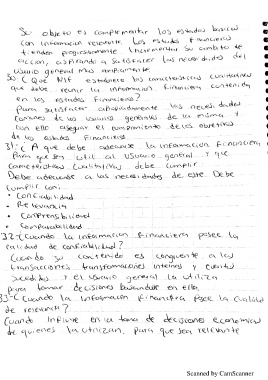 Su objeto es complementar los estados basicos
con informacion relevante. Los estados financieros
tienden progresivamente incrementar su ambito de
accion, aspirando a satisfacer las necesidades del
usuario general mas ampliamente.
30.¿Que NIF establece las caracteristicas cualitativas
que debe reunir la informacion financiera contenida
en los estados financieros?
Para satisfacer apropiadamente las necesidades
comunes de los usuarios generales de la misma y
con ello asegurar el cumplimiento de los objetivos
de los estados financieros
31.-¿A que debe adecuarse la informacion financiera
Para que sea util al usuario general y que
caracteristicas cualitativas debe cumplir
Debe adecuarse a las necesidades de este. Debe
cumplir con:
• Confiabilidad
• Relevancia
• Comprensibilidad
• Comparabilidad
32-¿Cuando la informacion financiera posee la
calidad de confiabilidad?
Cuando su contenido es congruente a las
transacciones transformaciones internas y eventos
sucedidos y el usuario general la utiliza
para tomar decisiones basandose en ella.
33-¿Cuando la informacion financiera posee la cualidad
de relevancia?
Cuando influye en la toma de decisiones economicas
de quienes la utilizan, para que sea relevante
Scanned by CamScanner